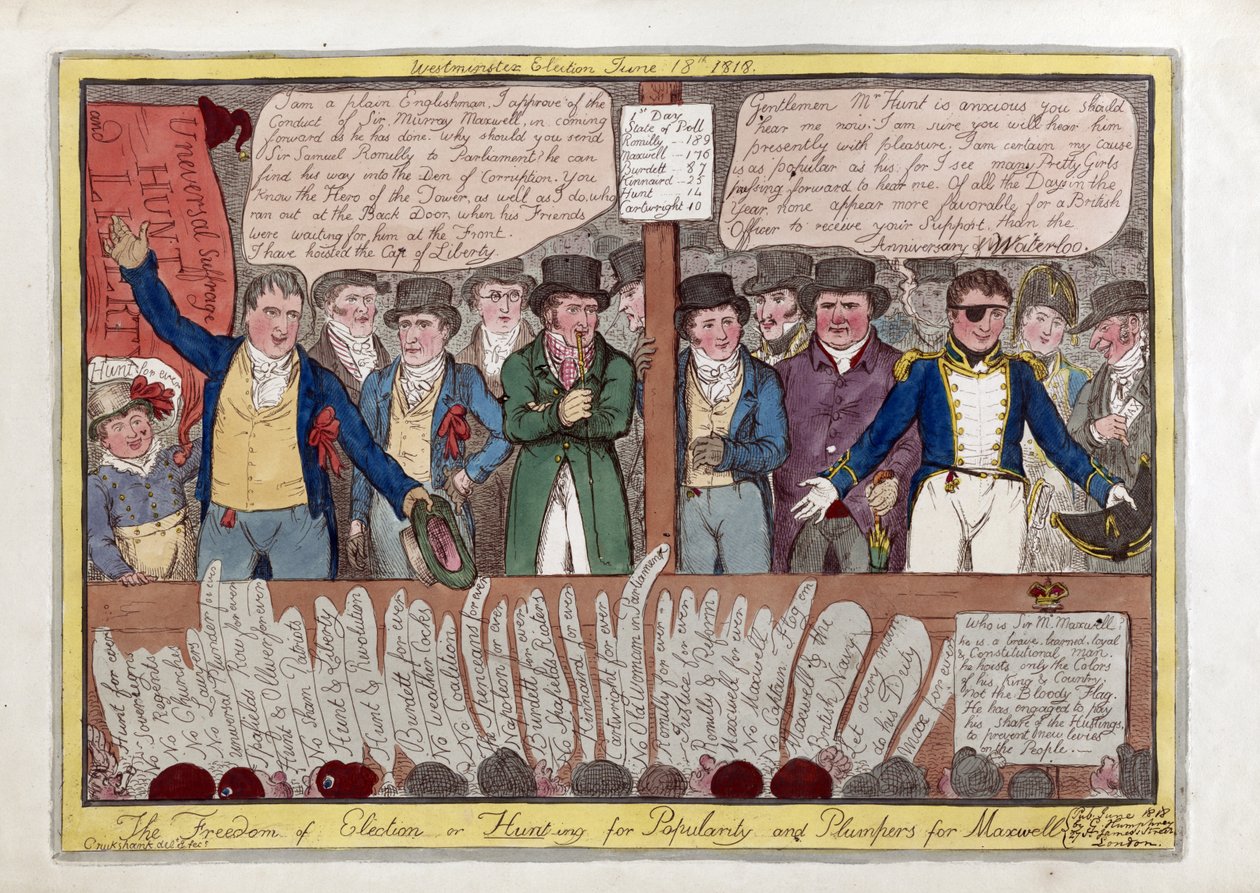 Westminster Election June 18th 1818.
Universal Suffrage
HUNT
and
LIBERTY
Hunt for ever
I am a plain Englishman, I approve of the
Conduct of Sir, Murray Maxwell, in coming
forward as he has done. Why should you send
Sir Samuel Romilly to Parliament? he can
find his way into the Den of Corruption. You
Know the Hero of the Tower, as well as I do, who
ran out at the Back Door, when his Friends
were waiting for him at the Front.
I have hoisted the Cap of Liberty.
1st Day
State of Poll
Romilly - 189
Maxwell - 176
Burdett - 87
Kinnaird - 25
Hunt 14
Cartwright 10
Gentlemen Mr Hunt is anxious you should
hear me now: I am sure you will hear him
presently with pleasure. I am certain my cause
is as popular as his: for I see many Pretty Girls
pressing forward to hear me. Of all the Days in the
Year, none appear more favorable, for a British
Officer to receive your Support, than the
Anniversary of Waterloo.
Hunt for ever
No Sovereigns
No Regents
No Churches
No Lawyers
No Plunder for ever
Universal Row for ever
Spafields & Oliver for ever
Hunt &
No Sham Patriots
Hunt & Liberty
Hunt & Revolution
Burdett for ever
No Weather Cocks
No Coalition
The Spenceans for ever
Napoleon for ever
Burdett for ever
No Spafields Rioters
Kinnaird for ever
Cartwright for ever
No Old Women in Parliament
Romilly for ever
Justice for ever
Romilly & Reform
Maxwell for ever
No Maxwell
No Captain Flog em
Maxwell & the
British Navy
Let every man
do his Duty
Max for ever
Who is Sir M. Maxwell?
he is a brave, learned, loyal
& Constitutional man.
he hoists only the Colors
of his King & Country,
not the Bloody Flag.
He has engaged to pay
his share of the Hustings,
to prevent new levies
on the People.—
The Freedom of Election or Hunt-ing for Popularity and Plumpers for Maxwell
Cruikshank del & fect
Pub. June 1818
by G. Humphrey
27 St James's Street
London.